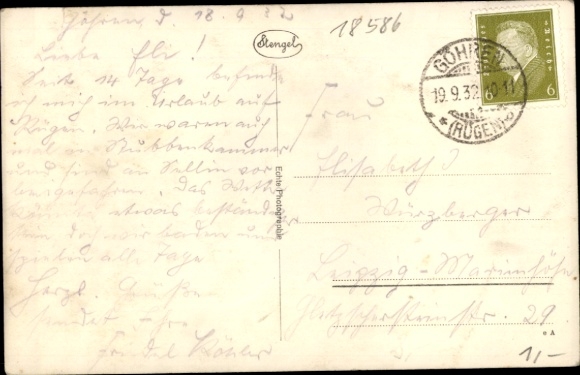 Göhren d. 18.9.32
Liebe Elli!
Seit 14 Tage befinde
ich mich im Urlaub auf
Rügen. Wir waren auch
mal in Stubbenkammer
und sind an Sellin vor
beigefahren. Das Wetter
könnte etwas beständiger
sein, doch wir baden und
spielen alle Tage
Herzl. Grüße
sendet
Friedel Köhler
Stengel
18586
Echte Photographie
GÖHREN
19.9.32 10-11
(RÜGEN)
6
Frau
Elisabeth
Würzberger
Leipzig-Marienhöhe
29
A
1,-